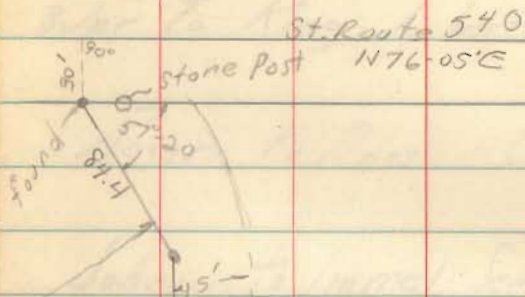 St. Route 540
N76-05'E
30'
900
Stone Post
57-20
found
84.4
45'